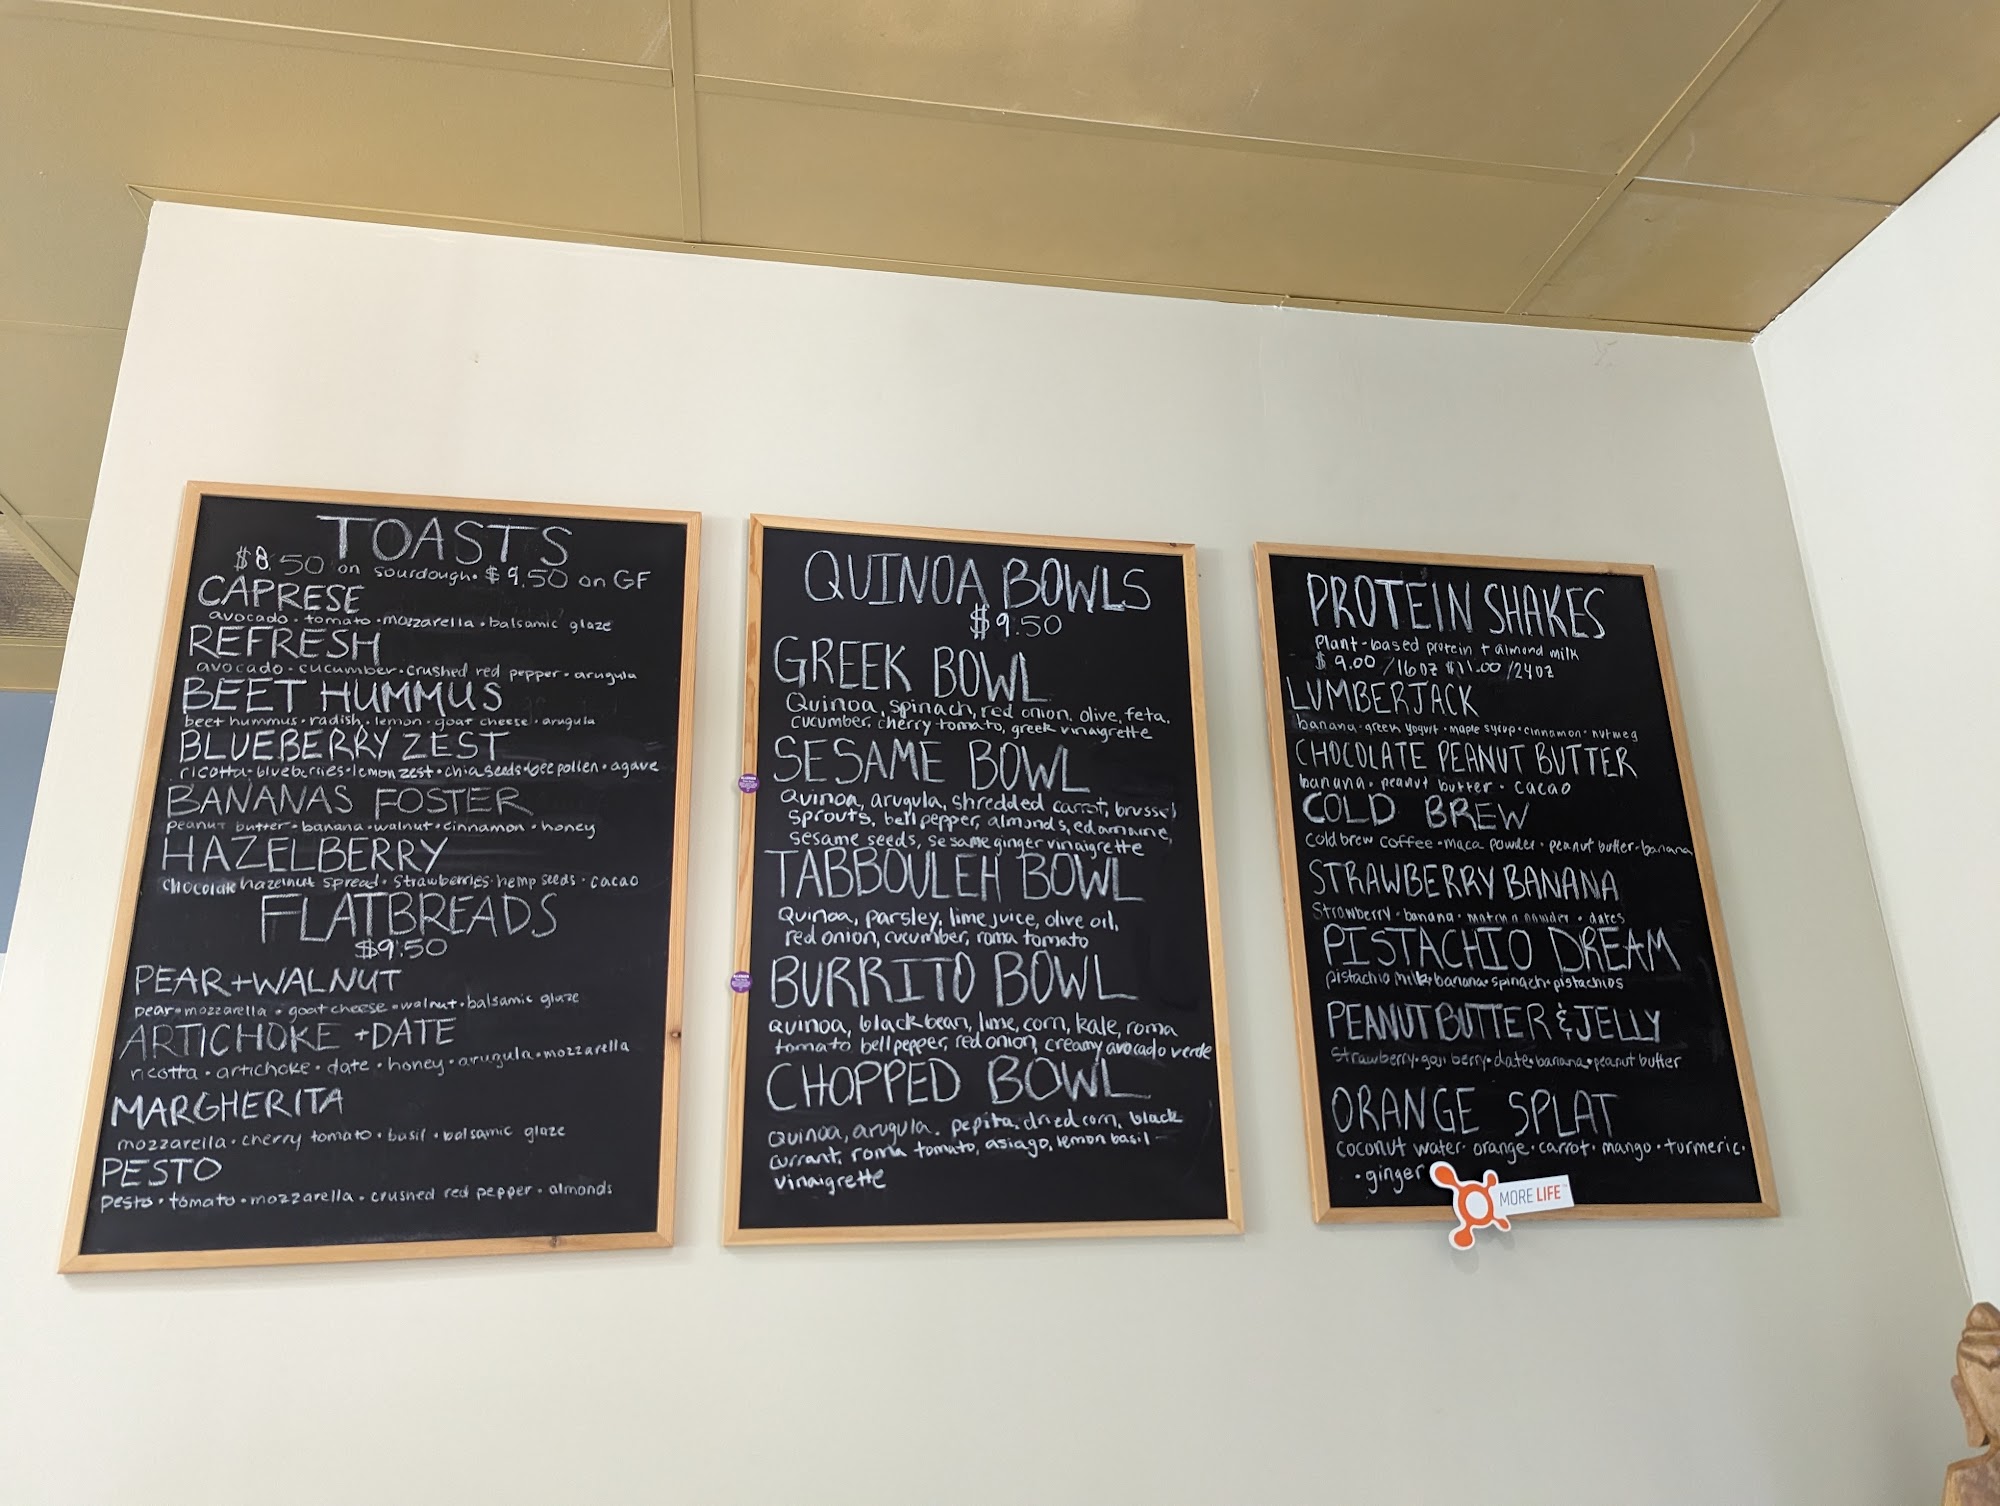 TOASTS
$8.50 on sourdough. $9.50 on GF
CAPRESE
avocado · tomato · mozzarella · balsamic glaze
REFRESH
avocado · cucumber · crushed red pepper · arugula
BEET HUMMUS
beet hummus · radish · lemon · goat cheese · arugula
BLUEBERRY ZEST
ricotta · blueberries · lemon zest · chia seeds · bee pollen · agave
BANANAS FOSTER
peanut butter · banana · walnut · cinnamon · honey
HAZELBERRY
chocolate hazelnut spread · strawberries · hemp seeds · cacao
FLATBREADS
$9.50
PEAR + WALNUT
pear · mozzarella · goat cheese · walnut · balsamic glaze
ARTICHOKE + DATE
ricotta · artichoke · date · honey · arugula · mozzarella
MARGHERITA
mozzarella · cherry tomato · basil · balsamic glaze
PESTO
pesto · tomato · mozzarella · crushed red pepper · almonds
QUINOA BOWLS
$9.50
GREEK BOWL
Quinoa, spinach, red onion, olive, feta,
cucumber, cherry tomato, greek vinaigrette
SESAME BOWL
Quinoa, arugula, shredded carrot, brussel
sprouts, bell pepper, almonds, edamame,
sesame seeds, sesame ginger vinaigrette
TABBOULEH BOWL
Quinoa, parsley, lime juice, olive oil,
red onion, cucumber, roma tomato
BURRITO BOWL
Quinoa, black bean, lime, corn, kale, roma
tomato bell pepper, red onion, creamy avocado verde
CHOPPED BOWL
Quinoa, arugula. pepita, dried corn, black
currant, roma tomato, asiago, lemon basil
vinaigrette
PROTEIN SHAKES
Plant-based protein + almond milk
$9.00 /16oz $11.00 /24oz
LUMBERJACK
banana · greek yogurt · maple syrup · cinnamon · nutmeg
CHOCOLATE PEANUT BUTTER
banana · peanut butter · cacao
COLD BREW
cold brew coffee · maca powder · peanut butter · banana
STRAWBERRY BANANA
Strawberry · banana · powder · dates
PISTACHIO DREAM
pistachio milk · banana · spinach · pistachios
PEANUT BUTTER & JELLY
Strawberry · goji berry · date · banana · peanut butter
ORANGE SPLAT
coconut water · orange · carrot · mango · turmeric ·
· ginger
MORE LIFE